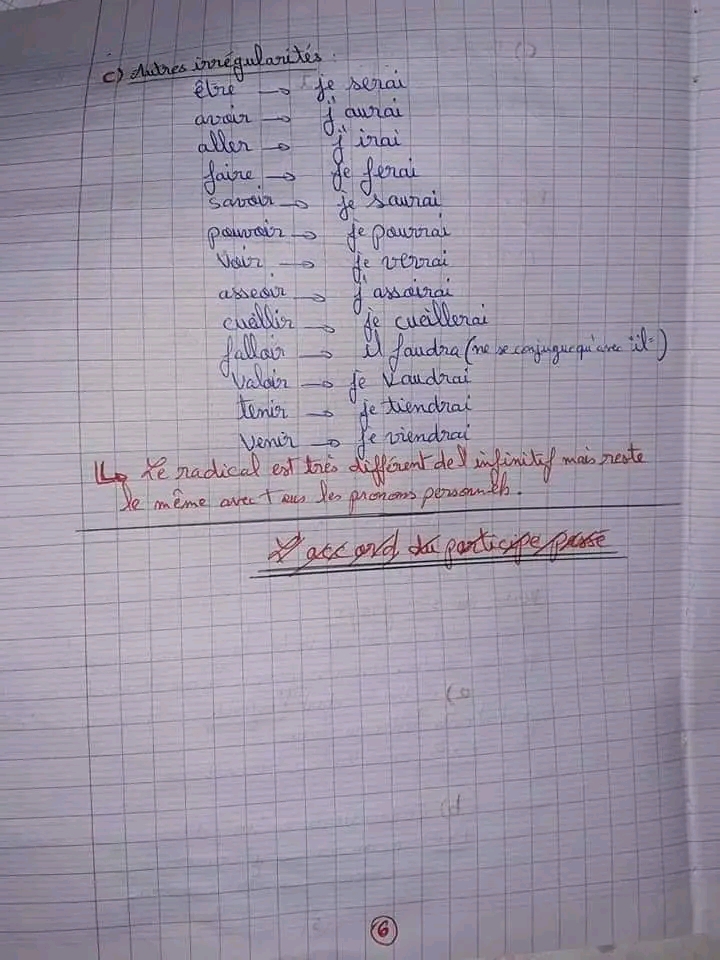 c) Autres irrégularités :
être → je serai
avoir → j'aurai
aller → j'irai
faire → je ferai
savoir → je saurai
pouvoir → je pourrai
Voir → je verrai
asseoir → j'assoirai
cuéllir → je cueillerai
falloir → il faudra (ne se conjugue qu'avec "il")
Valoir → je Vaudrai
tenir → je tiendrai
Venir → je viendrai
↳ Le radical est très différent de l'infinitif mais reste
le même avec tous les pronoms personnels.
L'accord du participe passé
6